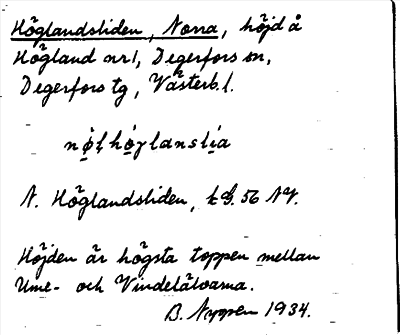 Höglandsliden, Norra, höjd å
Högland nr1, Degerfors sn,
Degerfors tg, Västerb.l.
N. Höglandsliden, kbl. 56 NV.
Höjden är högsta toppen mellan
Ume- och Vindelälvarna.
B. Nyman 1934.